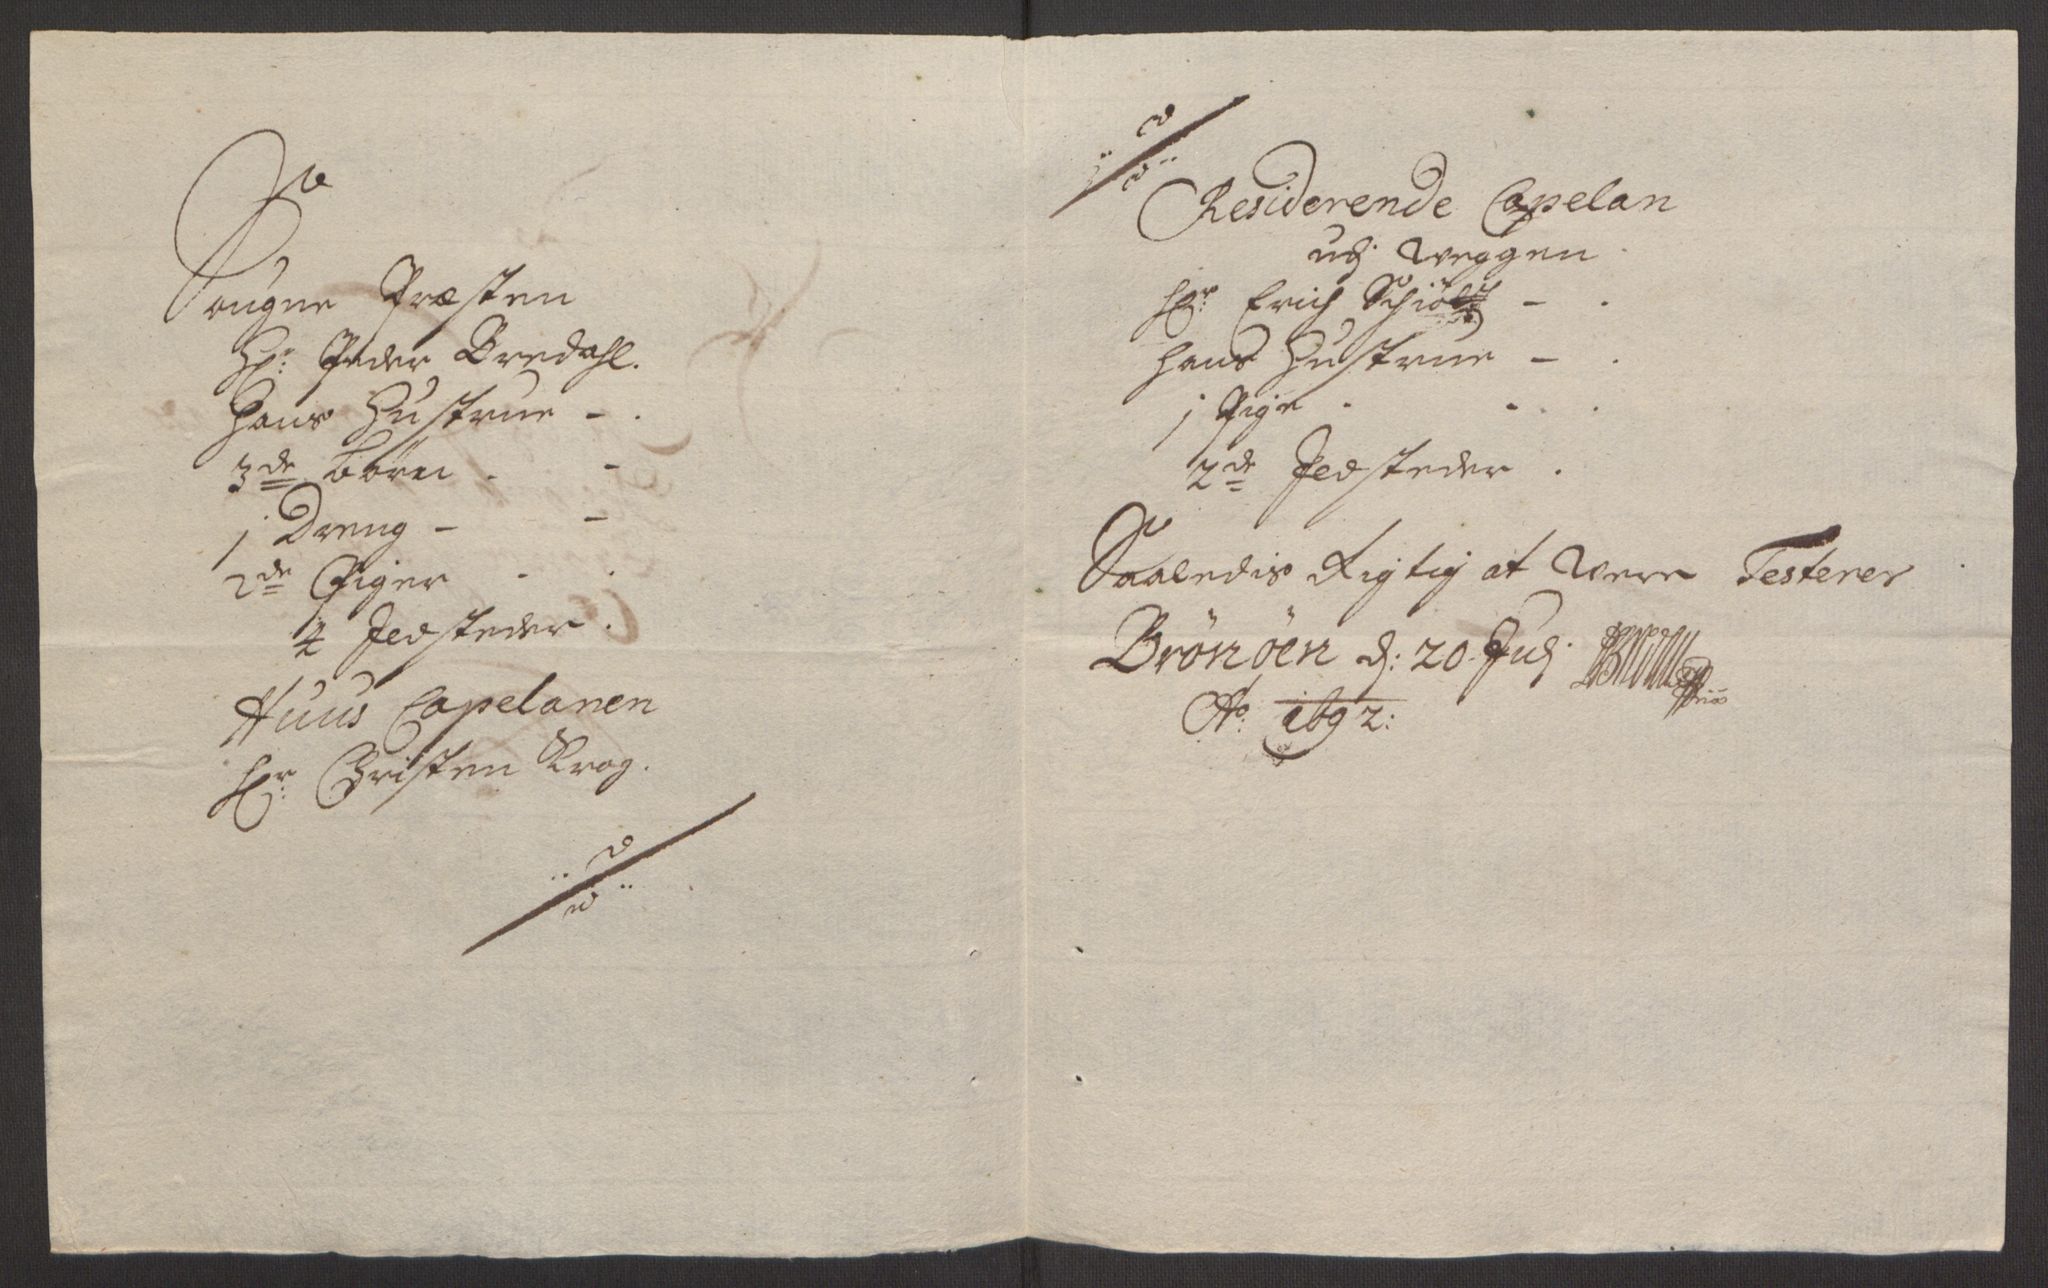 Sougne Præsten
Hr: Peder Bredahl.
Hans Hustrue -
3de Börn -
j Dreng -
2de Piger -
4 Jldsteder.
Huus Capelanen
Hr: Christen Krog.
Residerende Capelan
udj Weggen
Hr: Erich Schiölt -
Hans Hustrue -
j Pige -
2de Jldsteder.
Saaledis Rigtig at Were Testerer
Brönöen d: 20 Julj
Ao: 1692: